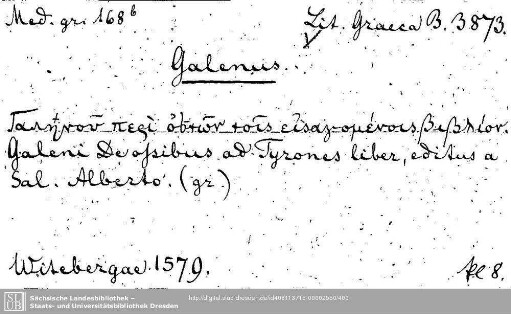 Med. gr. 168ᵇ
Lit. Graeca B. 3873.
Galenus.
Γαληνοῦ περὶ ὀστῶν τοῖς εἰσαγομένοις βιβλίον.
Galeni De ossibus ad Tyrones liber, editus a
Sal. Alberto. (gr.)
Witebergae. 1579.
kl 8.
SLUB
Sächsische Landesbibliothek –
Staats- und Universitätsbibliothek Dresden